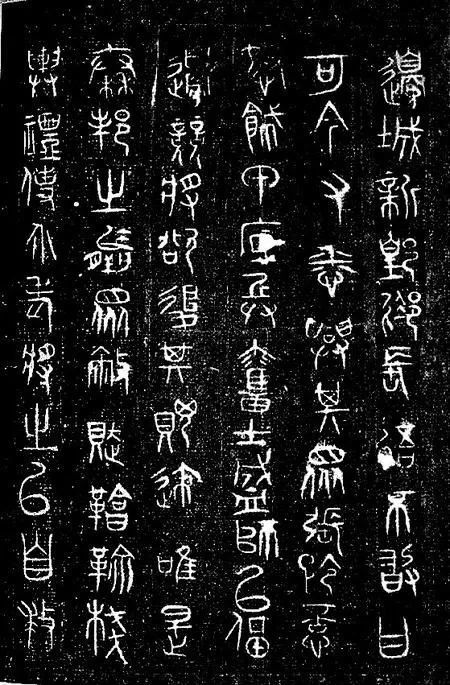 邊城新郪長不敢曰
可今又悉興其眾張矜意
怒飾甲底兵奮士盛師以偪
邊競將欲復其唯是
秦邦之羸眾敝賦鞈輸棧
輿禮使介老將之以自救